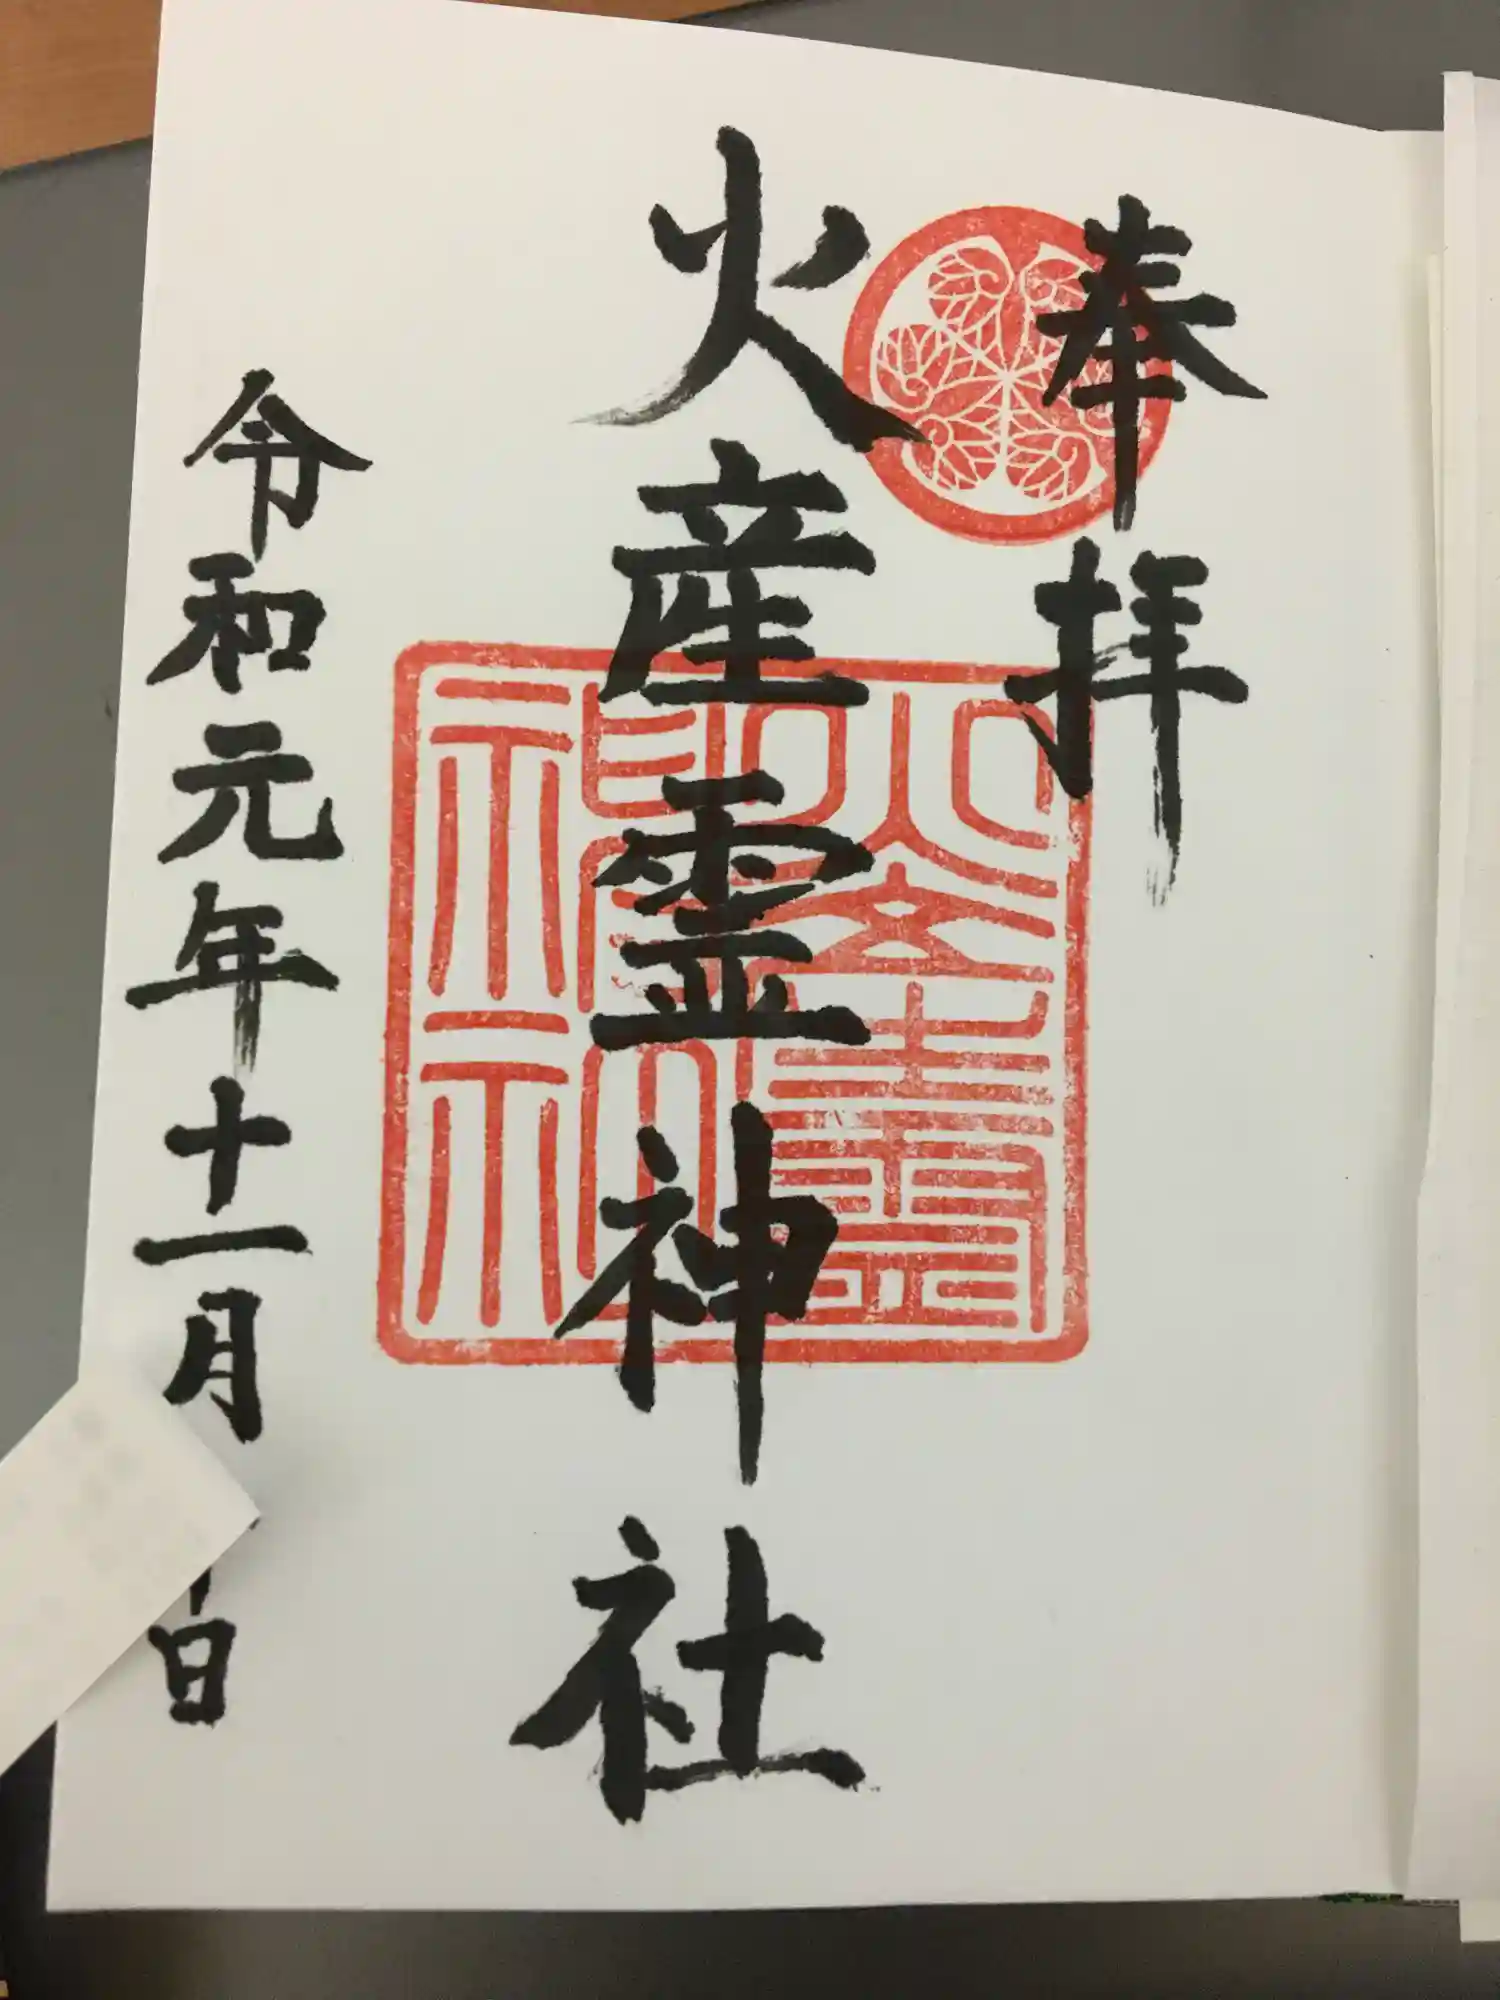 奉拝
火産霊神社
令和元年十一月
日
火産霊
神社